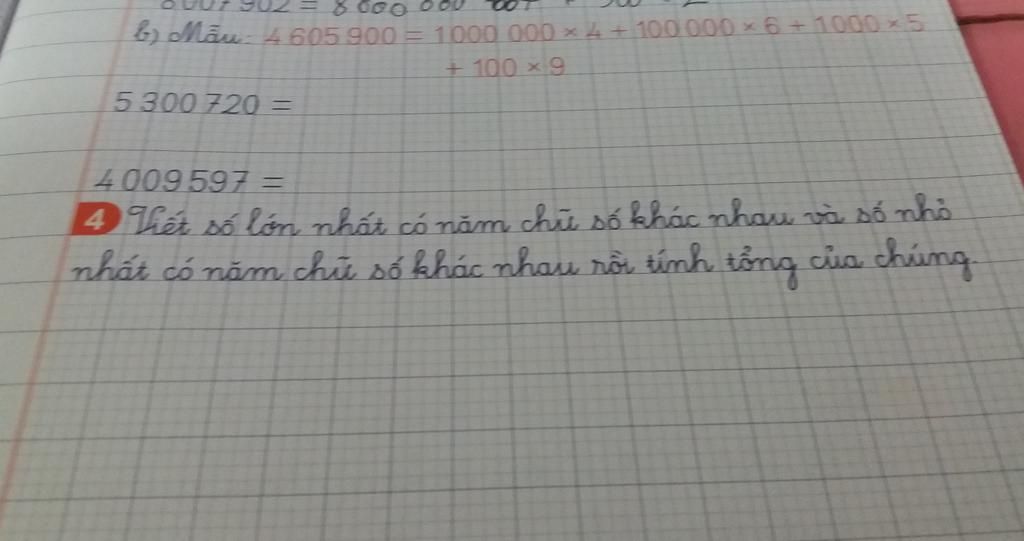 b) Mẫu: 4 605 900 = 1 000 000 × 4 + 100 000 × 6 + 1000 × 5
+ 100 × 9
5 300 720 =
4 009 597 =
4 Viết số lớn nhất có năm chữ số khác nhau và số nhỏ
nhất có năm chữ số khác nhau rồi tính tổng của chúng.